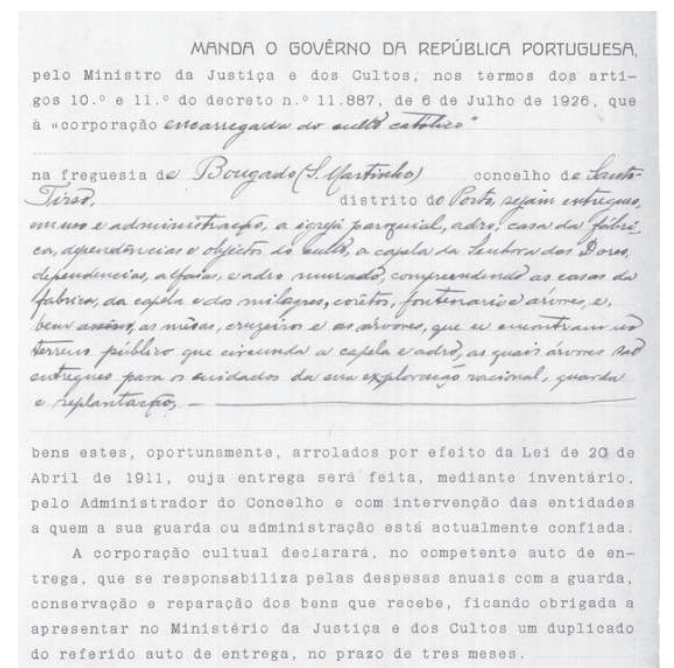 MANDA O GOVÊRNO DA REPÚBLICA PORTUGUESA,
pelo Ministro da Justiça e dos Cultos, nos termos dos arti-
gos 10.º e 11.º do decreto n.º 11.887, de 6 de Julho de 1926, que
à «corporação encarregada do culto católico"
na freguesia de Bougado (S. Martinho) concelho de Santo-
Tirso, distrito do Porto, sejam entregues,
em uso e administração, a igreja paroquial, adro, casa da fábri-
ca, dependências e objectos do culto, a capela da Senhora das Dores,
dependencias, alfaias, e adro murado, compreendendo as casas da
fabrica, da capela e dos milagres, corêtos, fontenario e árvores, e,
bem assim, as mêsas, cruzeiro e as árvores, que se encontram no
terreno público que circunda a capela e adro, as quais árvores são
entregues para os cuidados da sua exploração racional, guarda
e replantação, —
bens estes, oportunamente, arrolados por efeito da Lei de 20 de
Abril de 1911, cuja entrega será feita, mediante inventário,
pelo Administrador do Concelho e com intervenção das entidades
a quem a sua guarda ou administração está actualmente confiada.
A corporação cultual declarará, no competente auto de en-
trega, que se responsabiliza pelas despesas anuais com a guarda,
conservação e reparação dos bens que recebe, ficando obrigada a
apresentar no Ministério da Justiça e dos Cultos um duplicado
do referido auto de entrega, no prazo de tres meses.